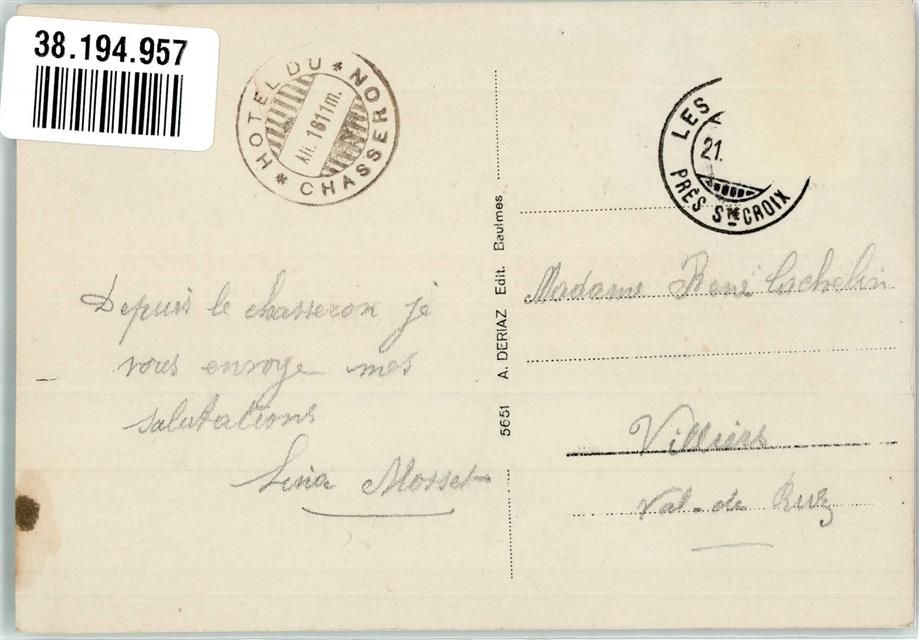 38.194.957
HOTEL DU CHASSERON
Alt. 1611 m.
LES
21.
PRÈS STE CROIX
Depuis le chasseron je
vous envoye mes
salutations
Lina Mosset
5651 A. DERIAZ Edit. Baulmes
Madame René Cachelin
Villiers
Val-de Ruz